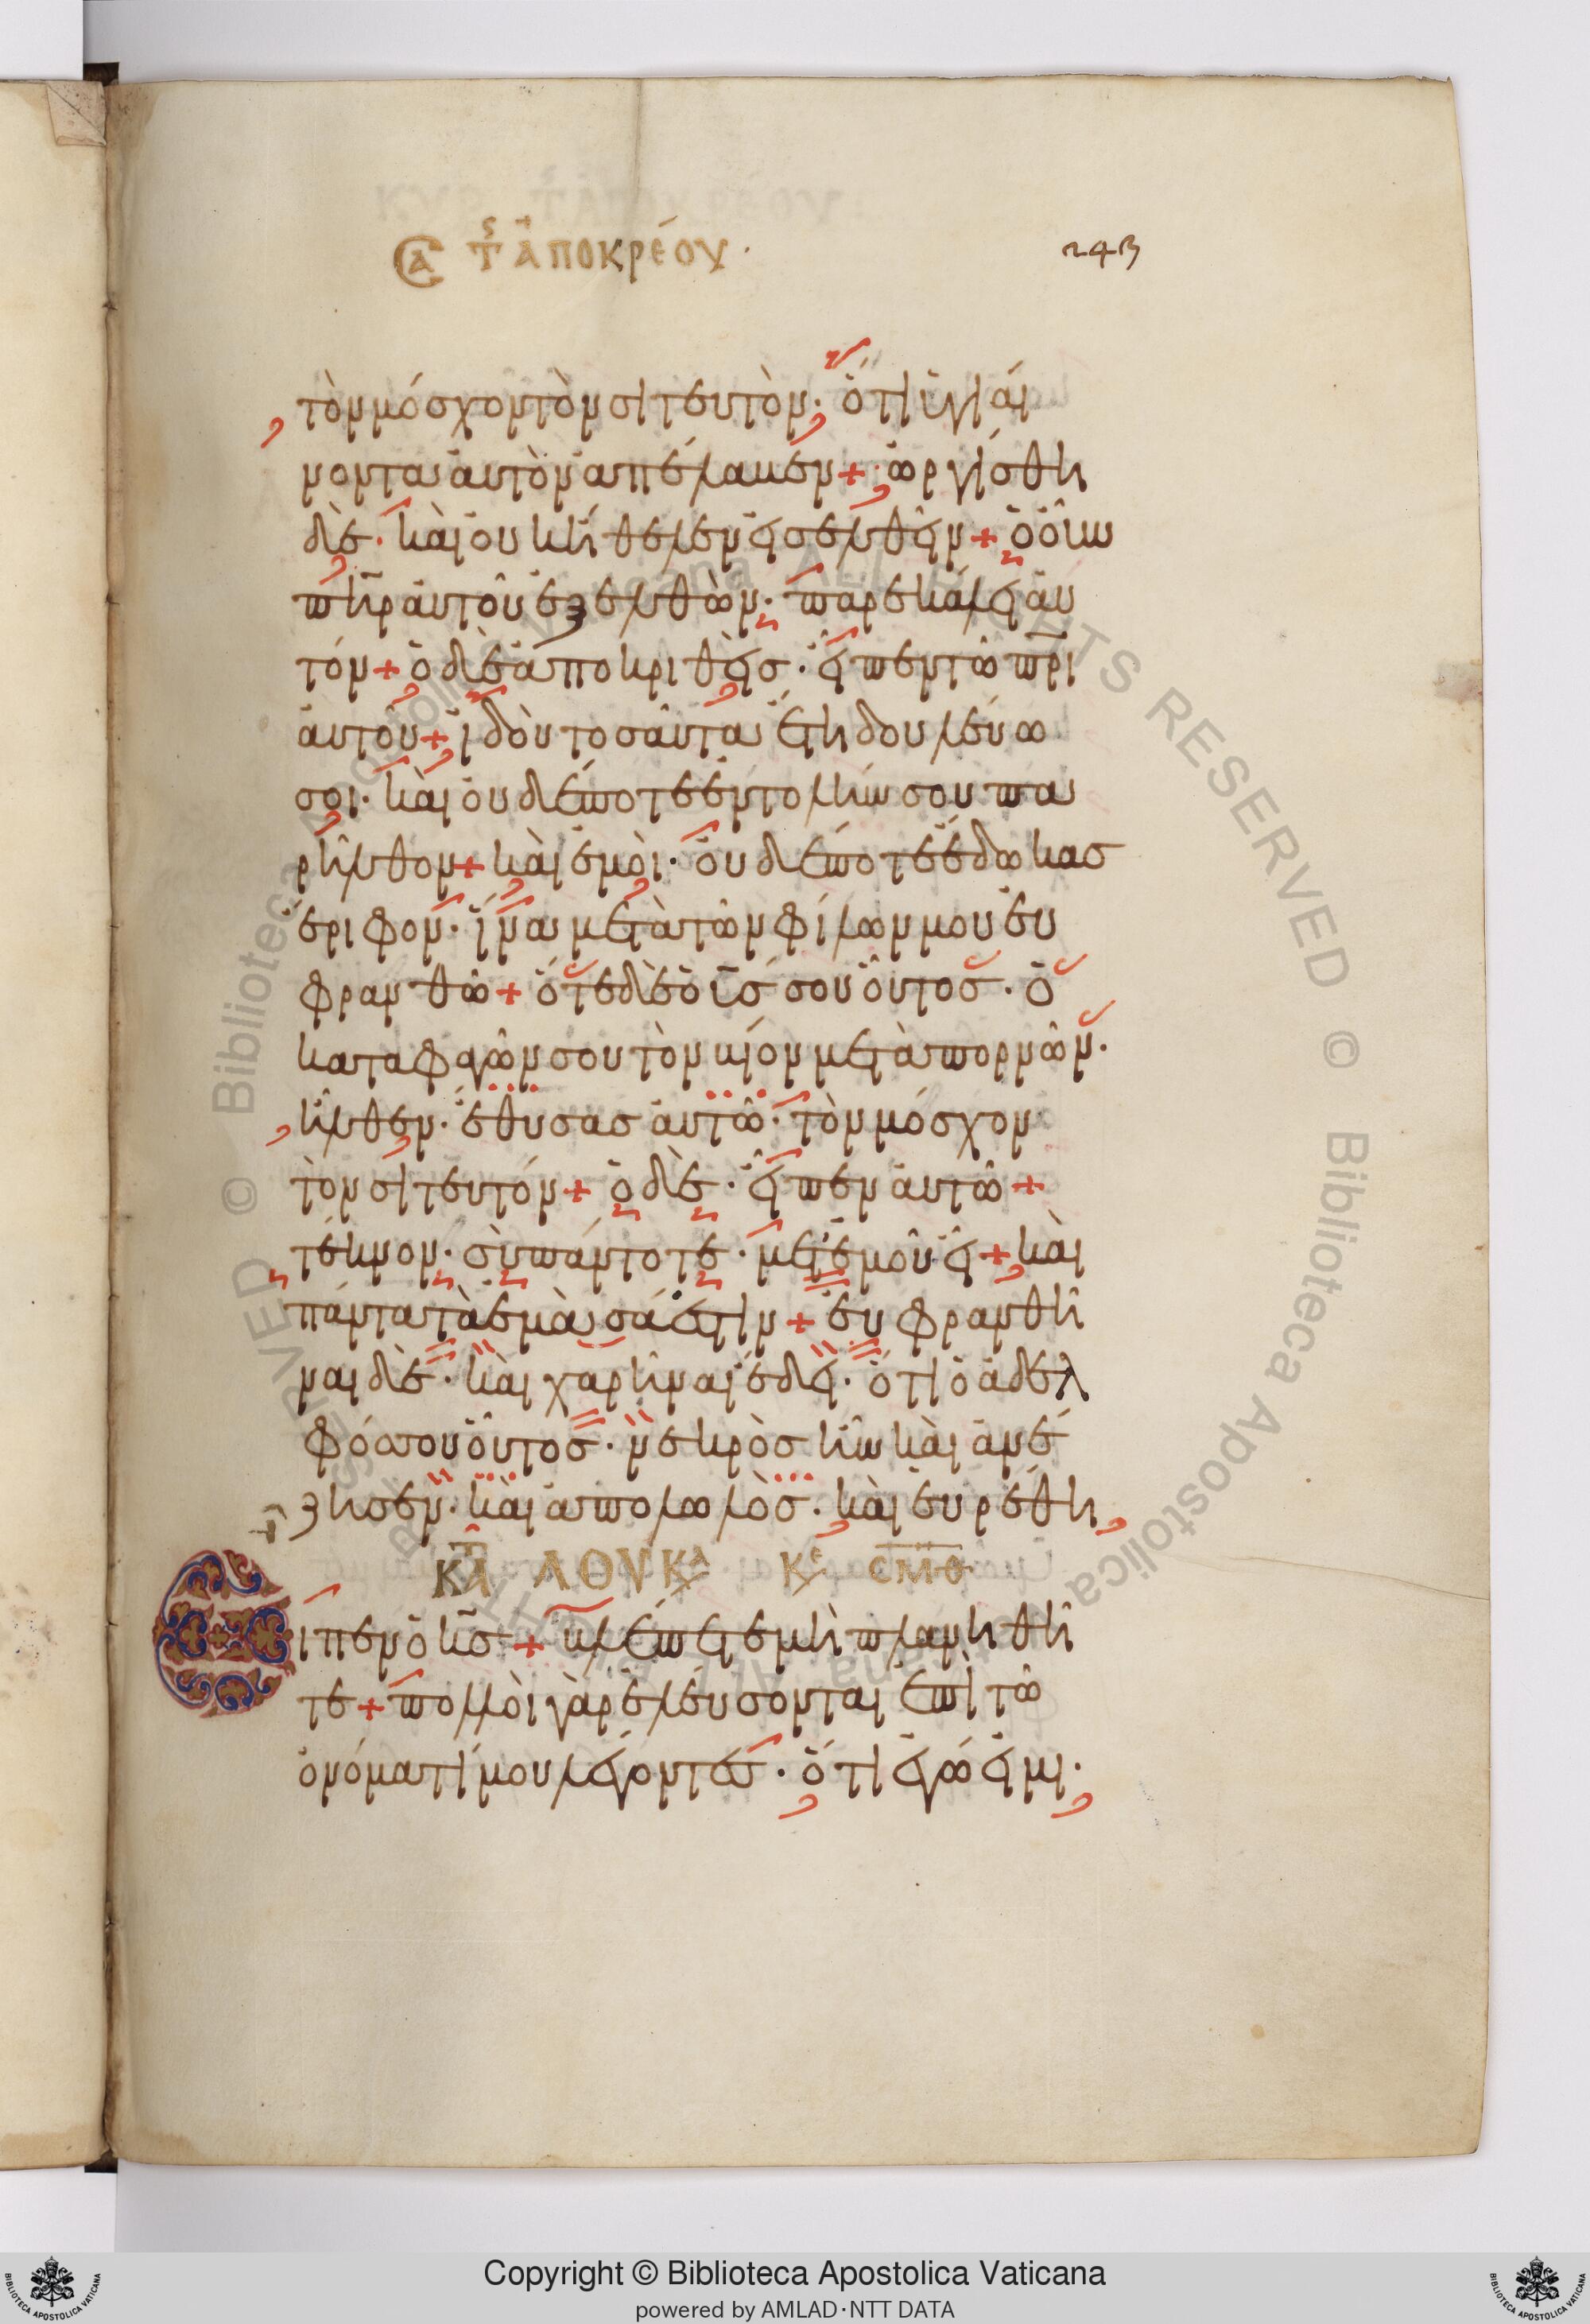 Σα τς ἀποκρέου·
243
τὸν μόσχον τὸν σιτευτὸν· ὅτι ὑγιαί
νοντα αὐτὸν ἀπέλαβεν + ὠργίσθη
δὲ· καὶ οὐκ ἤθελεν εἰσελθεῖν + ὁ οὖν
πηρ αὐτοῦ ἐξελθὼν· παρεκάλει αὐ
τόν + ὁ δὲ ἀποκριθεὶς· εἶπεν τῶ πρι
αὐτοῦ + ἰδοὺ τοσαῦτα ἔτη δουλεύω
σοι· καὶ οὐδέποτε ἐντολήν σου πα
ρῆλθον + καὶ ἐμοὶ· οὐδέποτε ἔδωκας
ἔριφον· ἵνα μετὰ τῶν φίλων μου εὐ
φρανθῶ + ὅτε δὲ ὁ υς σου οὗτος· ὁ
καταφαγών σου τὸν βίον μετὰ πορνῶν·
ἦλθεν· ἔθυσας αὐτῶ· τὸν μόσχον
τὸν σιτευτόν + ὁ δὲ· εἶπεν αὐτῶ +
τέκνον· σὺ πάντοτε· μετ' ἐμοῦ εἶ + καὶ
πάντα τὰ ἐμὰ σά ἐστιν + εὐφρανθῆ
ναι δὲ· καὶ χαρῆναι ἔδει· ὅτι ὁ ἀδελ
φός σου οὗτος· νεκρὸς ἦν καὶ ἀνέ
ζησεν· καὶ ἀπολωλὸς· καὶ εὑρέθη
Κατὰ Λουκα κε σμθ
Εἶπεν ὁ κς + βλέπετε μὴ πλανηθῆ
τε + πολλοὶ γὰρ ἐλεύσονται ἐπὶ τῶ
ὀνόματί μου λέγοντες· ὅτι ἐγώ εἰμι·
Copyright © Biblioteca Apostolica Vaticana
powered by AMLAD·NTT DATA